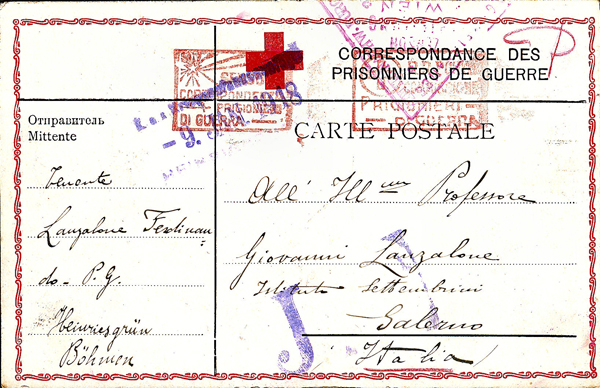 CORRESPONDANCE DES
PRISONNIERS DE GUERRE
WIEN
PRIGIONIERI
DI GUERRA
PRIGIONIERI
DI GUERRA
CARTE POSTALE
Отправитель
Mittente
Tenente
Lanzalone Ferdinan-
do - P. G.
Heinrichsgrün
Böhmen
All' Ill mo Professore
Giovanni Lanzalone
Istituto Settembrini
Salerno
(Italia)
J